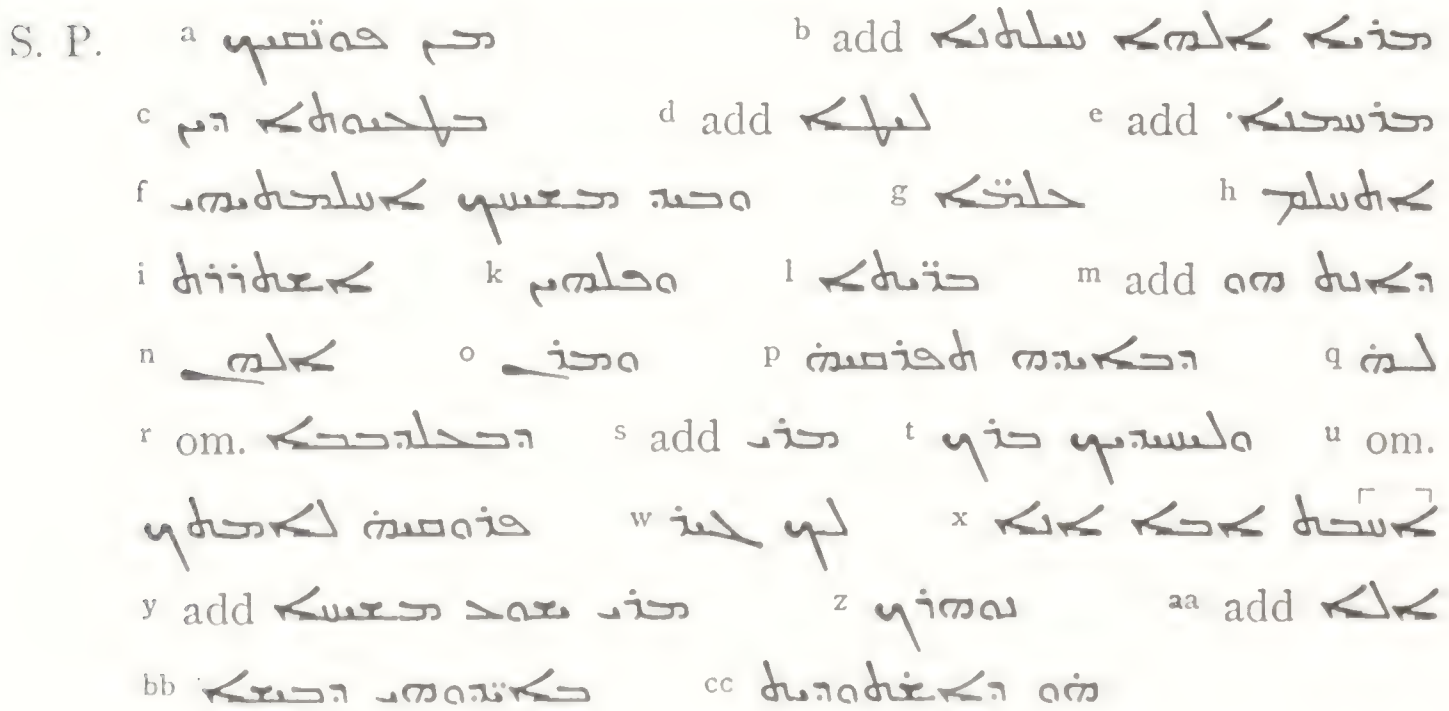 S. P. a ܡܢ ܦܘܪ̈ܣܝܟ b add ܡܪܝܐ ܐܠܗܐ ܚܝܠܬܢܐ
c ܕܝܢ d add ܠܝܛܐ e add ܡܪܚܡܢܐ
f ܘܒܝܕ ܡܫܝܚܟ ܐܚܠܡܬܝܗܝ g ܥܠܡ̈ܐ h ܐܬܚܠܡ
i ܐܫܬܪܪܬ k ܘܟܠܗܝܢ l ܒܪ̈ܝܬܐ m add ܕܐܝܬ ܗܘ
n ܐܠܗܢ o ܘܡܪܢ p ܕܒܐܝܕܗ ܬܦܪܣܝܗ̇ q ܠܗ̇
r om. ܕܒܥܠܕܒܒܐ s add ܡܪܝ t ܘܠܝܚܝܕܝܟ ܒܪܟ u om.
ܦܪܘܣܝܗ̇ ܠܐܡܬܟ w ܠܟ ܓܝܪ x ܐܚܒܬ ܐܒܐ ܐܢܐ
y add ܡܪܝ ܝܫܘܥ ܡܫܝܚܐ z ܢܘܗܪܟ aa add ܐܠܐ
bb ܒܐܝ̈ܕܘܗܝ ܕܒܝܫܐ cc ܗ̇ܘ ܕܐܫܬܘܕܝܬ